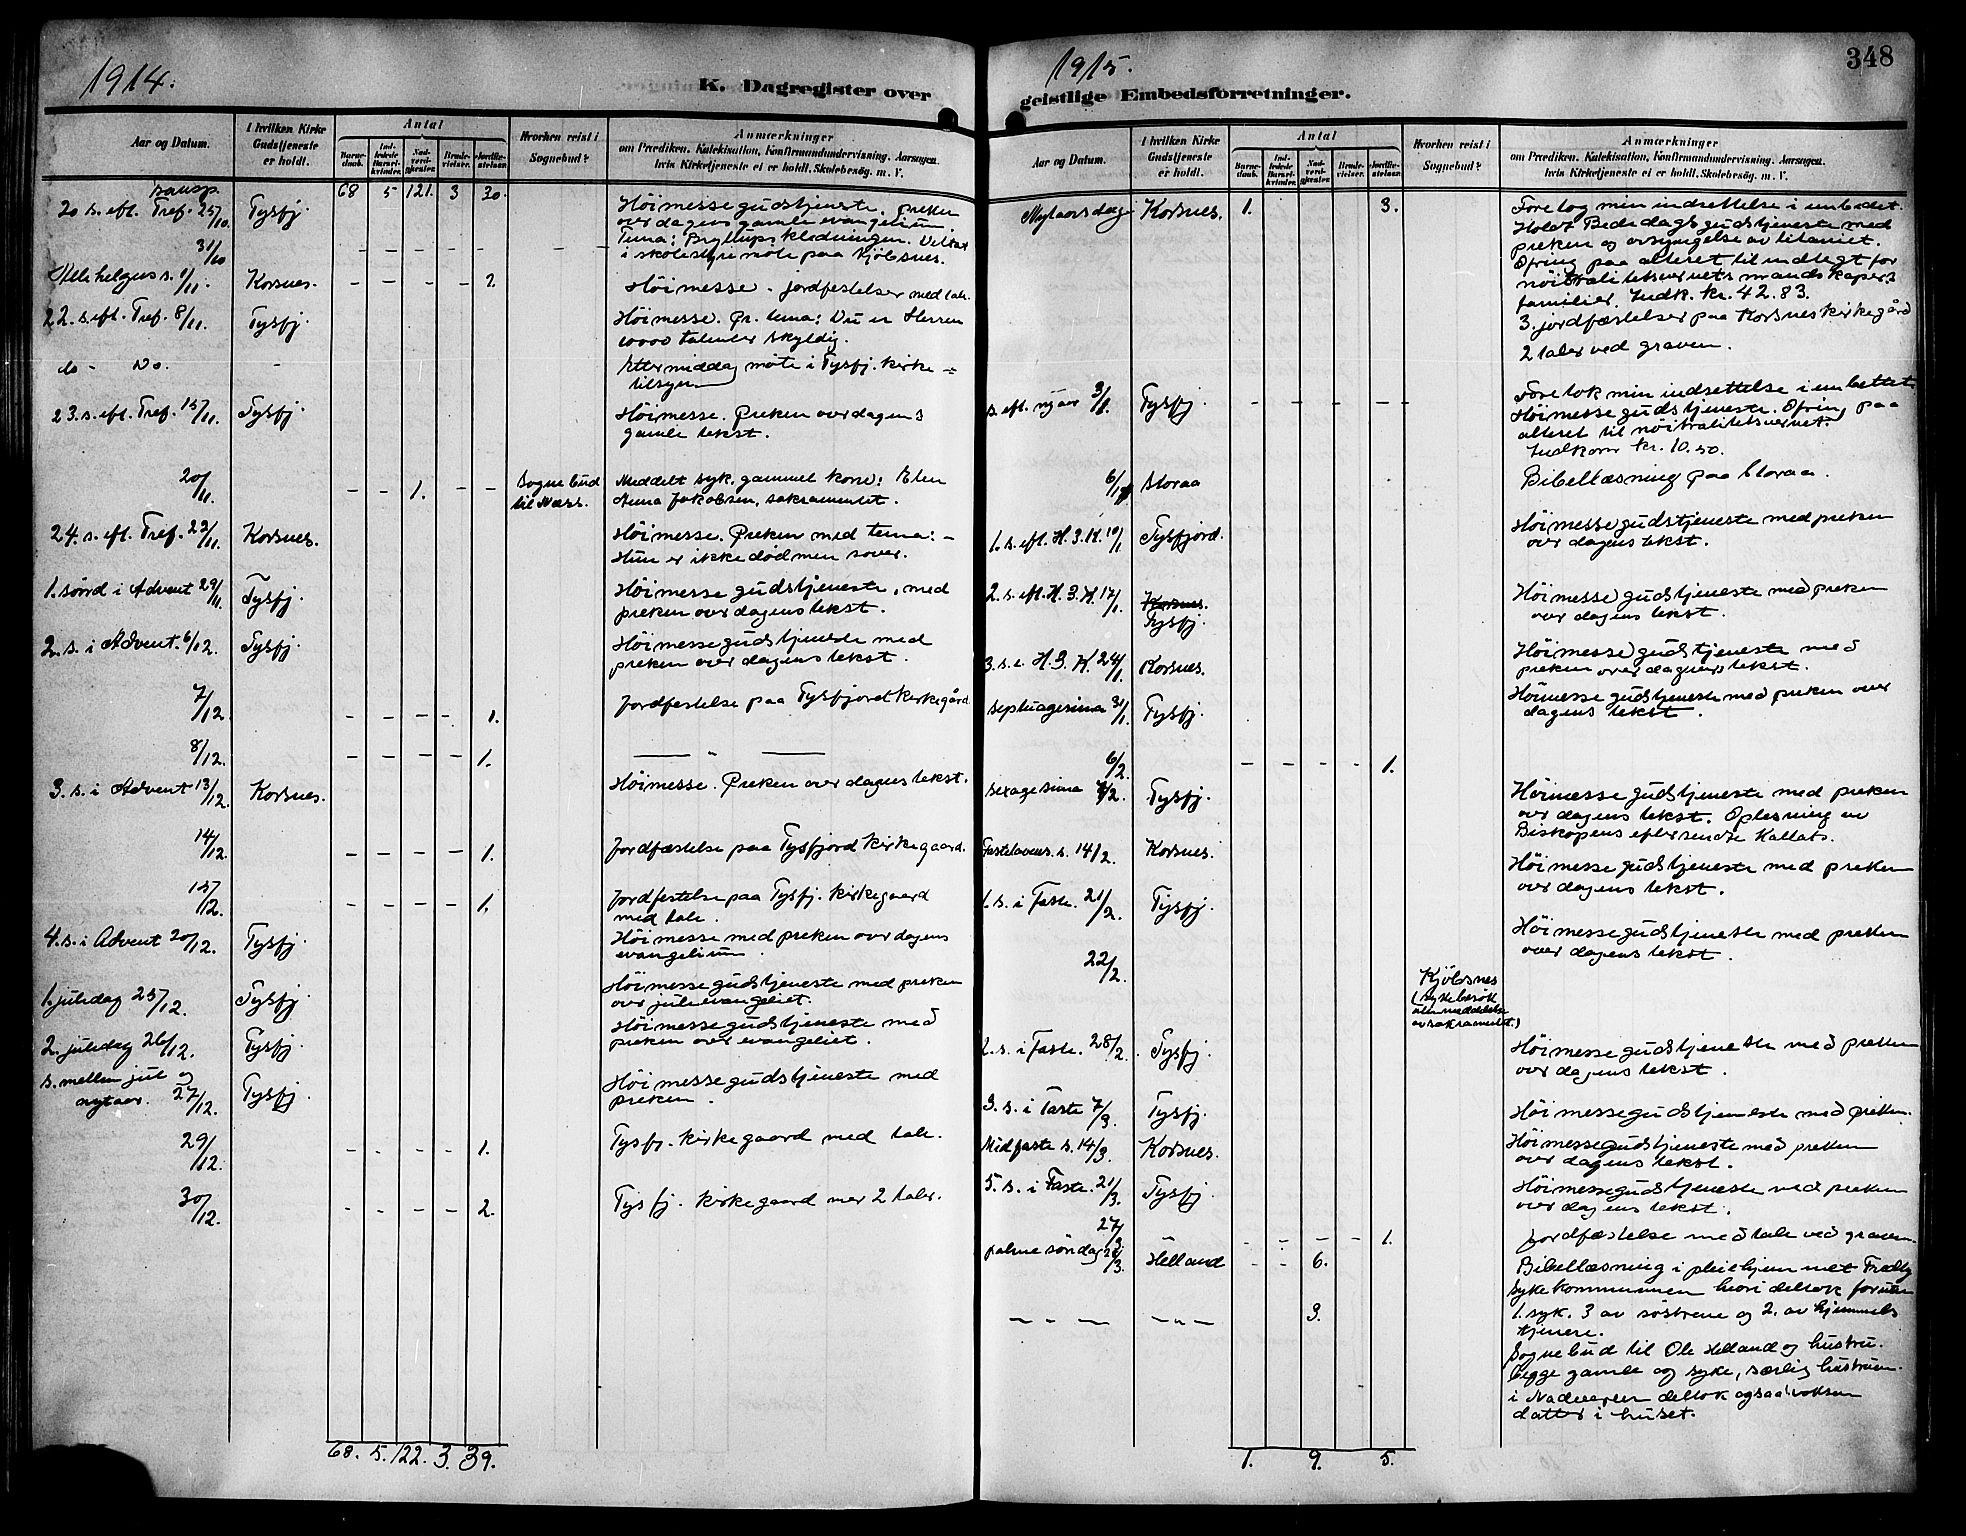 1914.
K. Dagregister over
Aar og Datum.
I hvilken Kirke Gudstjeneste er holdt.
Antal
Barnedaab.
Indledede Barselkvinder.
Nadverdgjester.
Brudevielser.
Jordfæstelser.
Hvorhen reist i Sognebud?
Anmærkninger
om Prædiken, Katekisation, Konfirmandundervisning. Aarsagen,
hvis Kirketjeneste ei er holdt. Skolebesøg. m. V.
transp. 68 5 121. 3 30.
20 s. eft. Tref. 25/10. Tysfj. Höimessegudstjeneste. Preken
over dagens gamle evangelium.
Tema: Bryllupsklædningen. Deltat
31/10 - - - - - - - i skolestyremöte paa Kjöbsnes.
Alle helgens s. 1/11. Korsnes. - - - - 2. Höimesse - jordfestelser med tale.
22. s. eft. Tref. 8/11. Tysfj. Höimesse. Pr. tema: Du er Herren
10000 talenter skyldig.
do - Do. - Ettermiddag möte i Tysfj. kirke -
tilsyn
23. s. eft. Tref. 15/11. Tysfj. Höimesse. Preken over dagens
gamle tekst.
20/11. - - 1. - - Sognebud til Næss. Meddelt syk, gammel kone: Elen
Anna Jakobsen, sakramentet.
24. s. eft. Tref. 22/11. Korsnes. Höimesse. Preken med tema: -
Hun er ikke död men sover.
1. sönd i Advent 29/11. Tysfj. Höimessegudstjeneste, med
preken over dagens tekst.
2. s. i Advent. 6/12. Tysfj. Höimessegudstjeneste med
preken over dagens tekst.
7/12. - - - - 1. Jordfestelse paa Tysfjord kirkegård.
8/12. - - - - 1. — " —
3. s. i Advent 13/12. Korsnes. Höimesse. Preken over dagens tekst.
14/12. - - - - 1. Jordfæstelse paa Tysfjord kirkegaard.
15/12. - - - - 1. Jordfestelse paa Tysfj. kirkegaard
med tale.
4. s. i Advent 20/12. Tysfj. Höimesse med preken over dagens
evangelium.
1. juledag 25/12. Tysfj. Höimessegudstjeneste med preken
over juleevangeliet.
2. juledag 26/12. Tysfj. Höimessegudstjeneste med
preken over evangeliet.
s. mellem jul og
nytaar. 27/12. Tysfj. Höimessegudstjeneste med
preken.
29/12. - - - - 1. Tysfj. kirkegaard med tale.
30/12. - - - - 2. Tysfj. kirkegaard mer 2 taler.
68. 5. 122. 3. 39.
1915.
348
geistlige Embedsforretninger.
Aar og Datum.
I hvilken Kirke Gudstjeneste er holdt.
Antal
Barnedaab.
Indledede Barselkvinder.
Nadverdgjester.
Brudevielser.
Jordfæstelser.
Hvorhen reist i Sognebud?
Anmærkninger
om Prædiken, Katekisation, Konfirmandundervisning. Aarsagen,
hvis Kirketjeneste ei er holdt. Skolebesøg. m. V.
Nytaarsdag Korsnes. 1. 3. Foretog min indsettelse i embedet.
Holdt Bededagsgudstjeneste med
preken og avsyngelse av litaniet.
Ofring paa alteret til indtegt for
nöitralitetsvernets mandskapers
familier. Indk. kr. 42.83.
3. jordfæstelser paa Korsnes kirkegård
2 taler ved graven.
s. eft. nyaar 3/1. Tysfj. - - - - - Foretok min indsettelse i embettet.
Höimessegudstjeneste. Ofring paa
alteret til nöitralitetsvernet.
Indkom kr. 10.50.
6/1 Storaa Bibellæsning paa Storaa.
1. s. eft. H. 3. K. 10/1 Tysfjord. Höimessegudstjeneste med preken
over dagens tekst.
2. s. eft. H. 3. K. 17/1. Korsnes.
Tysfj. Höimessegudstjeneste med preken
over dagens tekst.
3. s. e. H. 3. K. 24/1. Korsnes. Höimessegudstjeneste med
preken over dagens tekst.
Septuagesima 31/1. Tysfj. Höimessegudstjeneste med preken over
dagens tekst.
6/2. - - - - 1.
Sexagesima 7/2. Tysfj. Höimessegudstjeneste med preken
over dagens tekst. Oplesning av
Biskopens
Fastelavens s. 14/2. Korsnes. Höimessegudstjeneste med preken
over dagens tekst.
1. s. i Faste. 21/2. Tysfj. Höimessegudstjeneste med preken
over dagens tekst.
22/2. Kjöbsnes
(sykebesök
uten meddelelse
av sakramentet.)
2. s. i Faste. 28/2. Tysfj. Höimessegudstjeneste med preken
over dagens tekst.
3. s. i Faste 7/3. Tysfj. Höimessegudstjeneste med preken.
Midfaste s. 14/3. Korsnes. Höimessegudstjeneste med preken
over dagens tekst.
5. s. i Faste. 21/3. Tysfj. Höimessegudstjeneste ved preken
over dagens tekst.
27/3. - - - - 1. Jordfæstelse med tale ved graven.
palmesöndag 28/3. Helland - - 6. Bibellæsning i pleiehjemmet
Sykekommunion hvori deltok foruten
1. syk. 3 av söstrene og 2. av hjemmets
tjenere.
— — — — " — 3. Sognebud til Ole Helland og hustru.
begge gamle og syke, særlig hustruen.
i Nadveren deltok ogsaa voksen
datter i huset.
1. 9. 5.